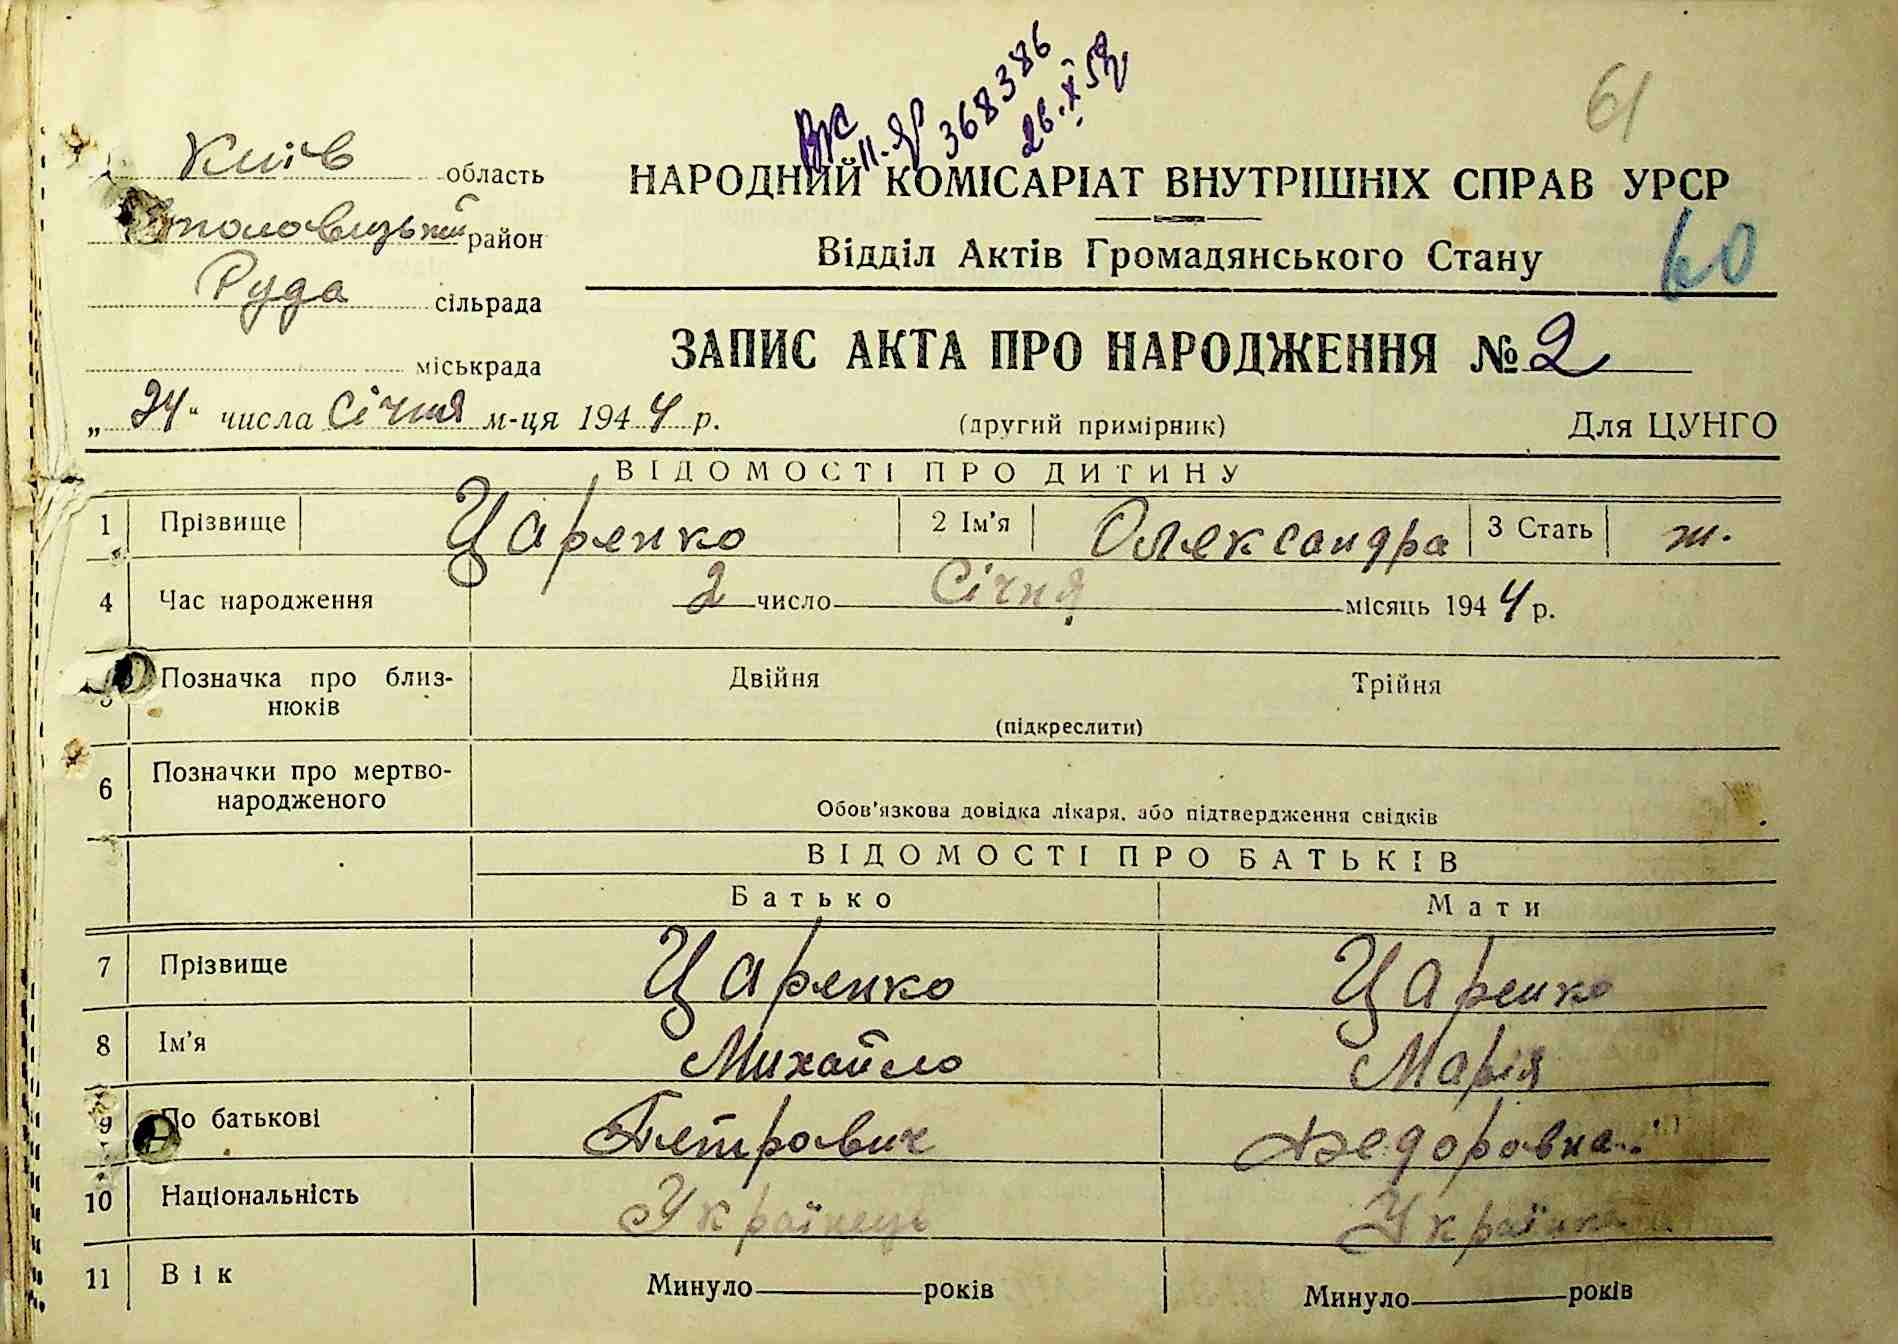 61
368386
26.XI 52
Київ область
район
Руда сільрада
міськрада
НАРОДНИЙ КОМІСАРІАТ ВНУТРІШНІХ СПРАВ УРСР
Відділ Актів Громадянського Стану
60
ЗАПИС АКТА ПРО НАРОДЖЕННЯ № 2
„24“ числа Січня м-ця 1944 р.
(другий примірник)
Для ЦУНГО
ВІДОМОСТІ ПРО ДИТИНУ
1 Прізвище Царенко 2 Ім'я Олександра 3 Стать ж.
4 Час народження 2 число Січня місяць 1944 р.
5 Позначка про близ-
нюків
Двійня Трійня
(підкреслити)
6 Позначки про мертво-
народженого
Обов'язкова довідка лікаря, або підтвердження свідків
ВІДОМОСТІ ПРО БАТЬКІВ
Батько Мати
7 Прізвище Царенко Царенко
8 Ім'я Михайло Марія
9 По батькові Петрович Федоровна
10 Національність Українець Українка
11 Вік Минуло років Минуло років